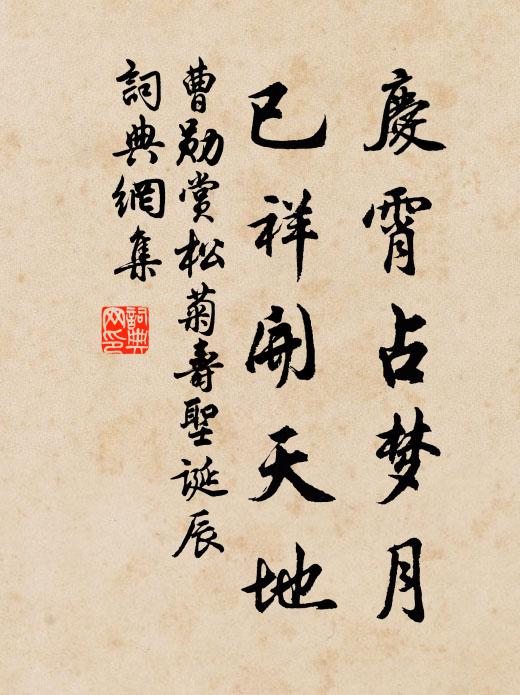 慶霄占梦月
已祥開天地
曹勋赏松菊壽聖誕辰
詞典網集
詞典
网印